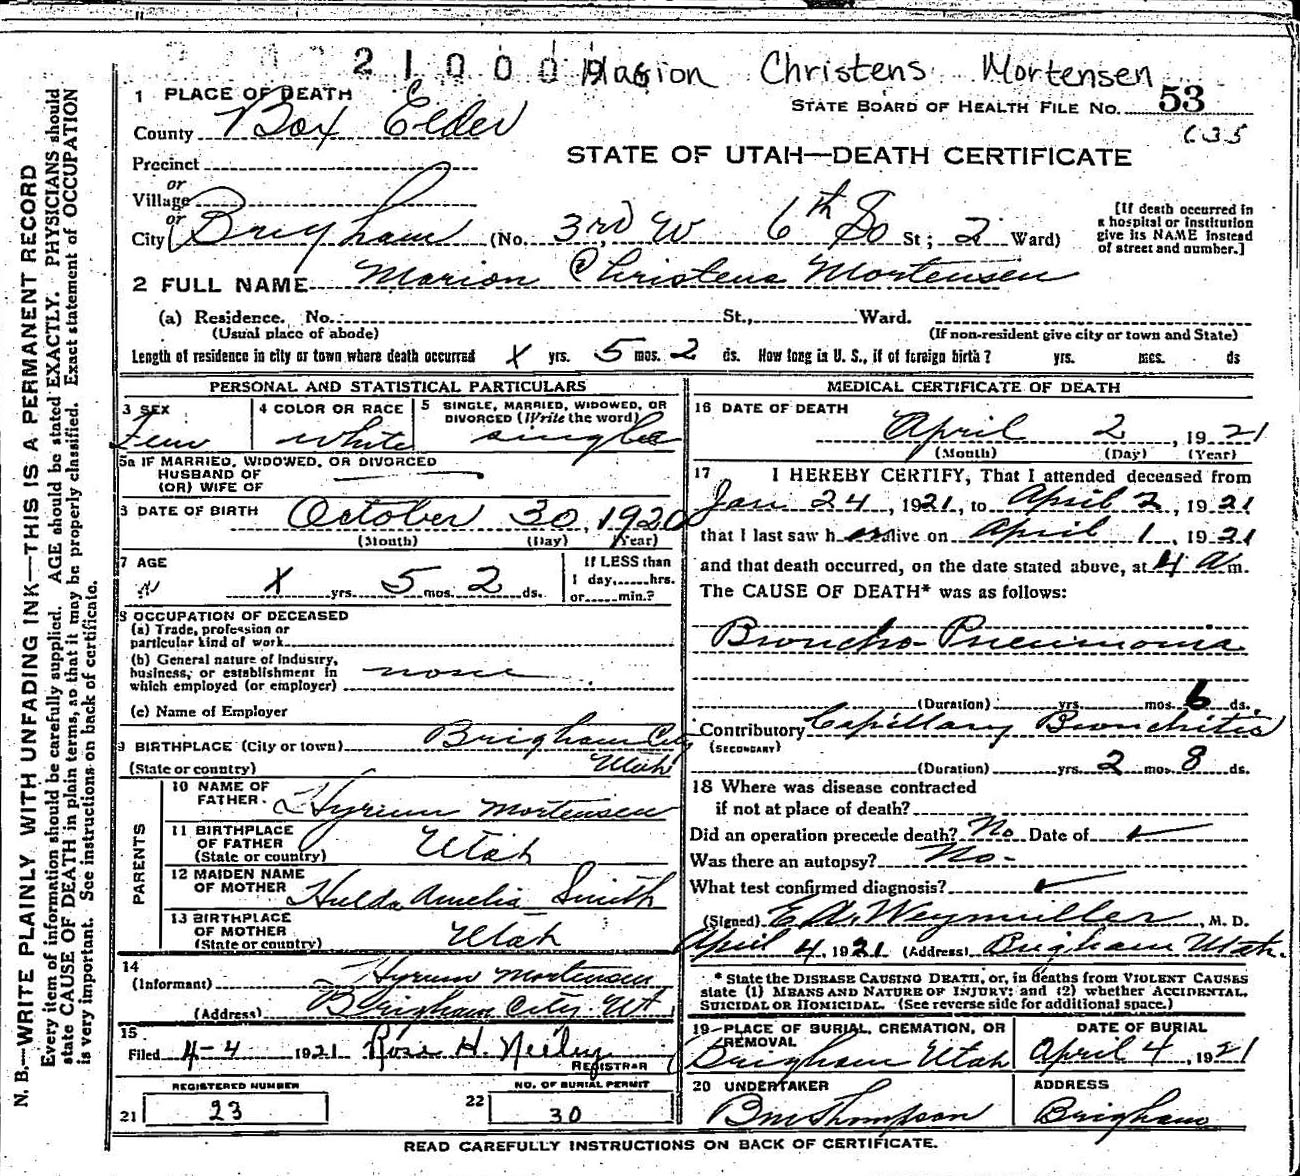 21000 Marion Christens Mortensen
1 PLACE OF DEATH
STATE BOARD OF HEALTH FILE NO. 53
County Box Elder
635
STATE OF UTAH—DEATH CERTIFICATE
Precinct
or
Village
or
City Brigham (No. 3rd W 6th So St; 2 Ward)
[If death occurred in
a hospital or institution
give its NAME instead
of street and number.]
2 FULL NAME Marion Christena Mortensen
(a) Residence. No. St., Ward.
(Usual place of abode) (If non-resident give city or town and State)
Length of residence in city or town where death occurred X yrs. 5 mos. 2 ds. How long in U. S., if of foreign birth? yrs. mos. ds
PERSONAL AND STATISTICAL PARTICULARS
3 SEX
Fem
4 COLOR OR RACE
white
5 SINGLE, MARRIED, WIDOWED, OR
DIVORCED (Write the word)
single
5a IF MARRIED, WIDOWED, OR DIVORCED
HUSBAND OF
(OR) WIFE OF
6 DATE OF BIRTH October 30, 1920
(Month) (Day) (Year)
7 AGE
X yrs. 5 mos. 2 ds.
If LESS than
1 day,......hrs.
or......min.?
8 OCCUPATION OF DECEASED
(a) Trade, profession or
particular kind of work
(b) General nature of Industry,
business, or establishment in
which employed (or employer) none
(c) Name of Employer
9 BIRTHPLACE (City or town) Brigham City
(State or country) Utah
PARENTS
10 NAME OF
FATHER Hyrum Mortensen
11 BIRTHPLACE
OF FATHER
(State or country) Utah
12 MAIDEN NAME
OF MOTHER Hulda Amelia Smith
13 BIRTHPLACE
OF MOTHER
(State or country) Utah
14
(Informant) Hyrum Mortensen
(Address) Brigham City Ut
15
Filed 4-4 1921 Rose H. Neeley
REGISTRAR
REGISTERED NUMBER
21 23
NO. OF BURIAL PERMIT
22 30
MEDICAL CERTIFICATE OF DEATH
16 DATE OF DEATH
April 2, 1921
(Month) (Day) (Year)
17 I HEREBY CERTIFY, That I attended deceased from
Jan 24, 1921, to April 2, 1921
that I last saw h er alive on April 1, 1921
and that death occurred, on the date stated above, at 4 A m.
The CAUSE OF DEATH* was as follows:
Broncho-Pneumonia
(Duration) yrs. mos. 6 ds.
Contributory Capillary Bronchitis
(SECONDARY)
(Duration) yrs. 2 mos 8 ds.
18 Where was disease contracted
if not at place of death?
Did an operation precede death? No Date of ✓
Was there an autopsy? No -
What test confirmed diagnosis? ✓
(Signed) E A. Weymuller, M. D.
April 4, 1921 (Address) Brigham Utah.
* State the DISEASE CAUSING DEATH, or, in deaths from VIOLENT CAUSES
state (1) MEANS AND NATURE OF INJURY; and (2) whether ACCIDENTAL,
SUICIDAL OR HOMICIDAL. (See reverse side for additional space.)
19—PLACE OF BURIAL, CREMATION, OR
REMOVAL
Brigham Utah
DATE OF BURIAL
April 4, 1921
20 UNDERTAKER
B M Thompson
ADDRESS
Brigham
READ CAREFULLY INSTRUCTIONS ON BACK OF CERTIFICATE.
N. B.—WRITE PLAINLY WITH UNFADING INK—THIS IS A PERMANENT RECORD
Every item of information should be carefully supplied. AGE should be stated EXACTLY. PHYSICIANS should
state CAUSE OF DEATH in plain terms, so that it may be properly classified. Exact statement of OCCUPATION
is very important. See instructions on back of certificate.